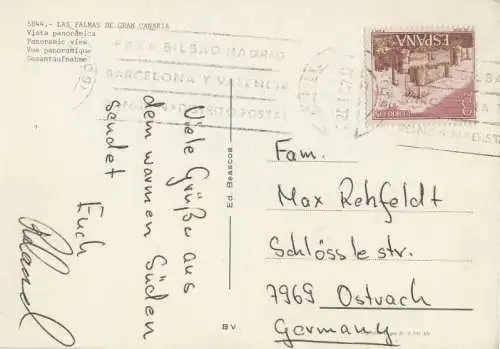 5844.- LAS PALMAS DE GRAN CANARIA
Vista panorámica
Panoramic view
Vue panoramique
Gesamtaufnahme
BILBAO MADRID
BARCELONA Y VALENCIA
POSTAL
ESPAÑA
CORREOS
Viele Grüße aus
dem warmen Süden
sendet
Euch
Ed. Beascoa
BV
Fam.
Max Rehfeldt
Schlössle str.
7969 Ostrach
Germany